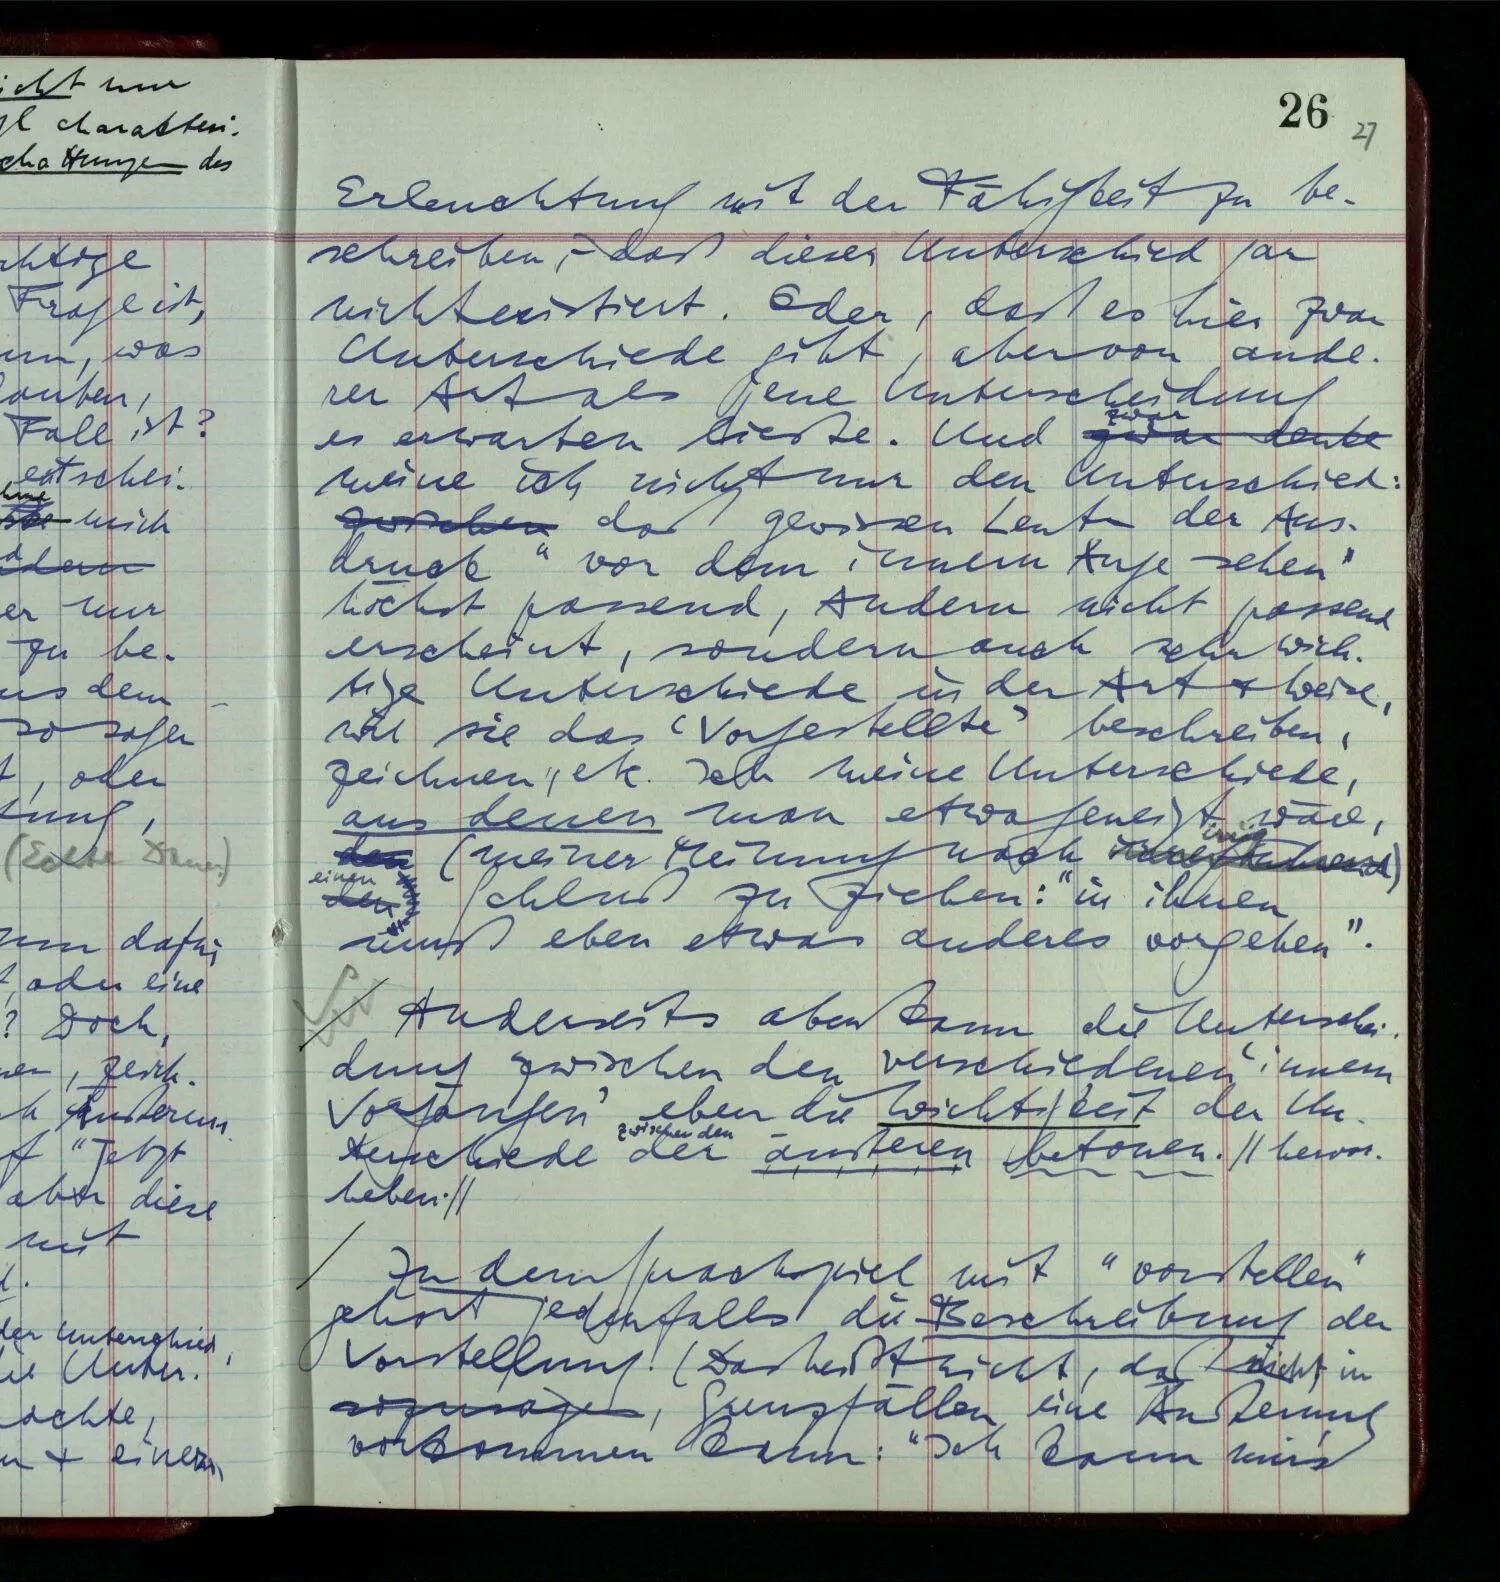 icht nur
gl charakteri-
chattungen des
chtige
Frage ist,
um, was
lauben,
Fall ist?
entschei-
mich
dern
er nur
zu be-
us dem
so sagen
t, oder
tung,
(Echte Dauer)
um dafür
t, oder eine
? Doch,
nen, zeich-
h Äusserun-
f "Jetzt
aber diese
mit
d.
der Unterschied,
ie Unter-
achte,
n + einem
26
27
Erleuchtung mit der Fähigkeit zu be-
schreiben, – daß dieser Unterschied gar
nicht existiert. Oder, daß es hier zwar
Unterschiede gibt, aber von ande-
rer Art als jene Unterscheidung
es erwarten ließe. Und zwar denke
zwar
meine ich nicht nur den Unterschied:
zwischen daß gewissen Leuten der Aus-
druck "vor dem innern Auge sehen"
höchst passend, Andern nicht passend
erscheint, sondern auch sehr wich-
tige Unterschiede in der Art + Weise,
wie sie das 'Vorgestellte' beschreiben,
zeichnen, etc. Ich meine Unterschiede,
aus denen man etwa geneigt wäre,
irrig
den (meiner Meinung nach )
einen
den Schluß zu ziehen: "in ihnen
muß eben etwas anderes vorgehen".
/ Anderseits aber kann die Unterschei-
dung zwischen den verschiedenen 'innern
Vorgängen' eben die Wichtigkeit der Un-
zwischen den
terschiede der äusseren betonen. // hervor-
heben. //
/ Zu dem Sprachspiel mit "vorstellen"
gehört jedenfalls die Beschreibung der
Vorstellung. (Das heißt nicht, daß nicht in
sozusagen, Grenzfällen eine Äußerung
vorkommen kann: "Ich kann mir's